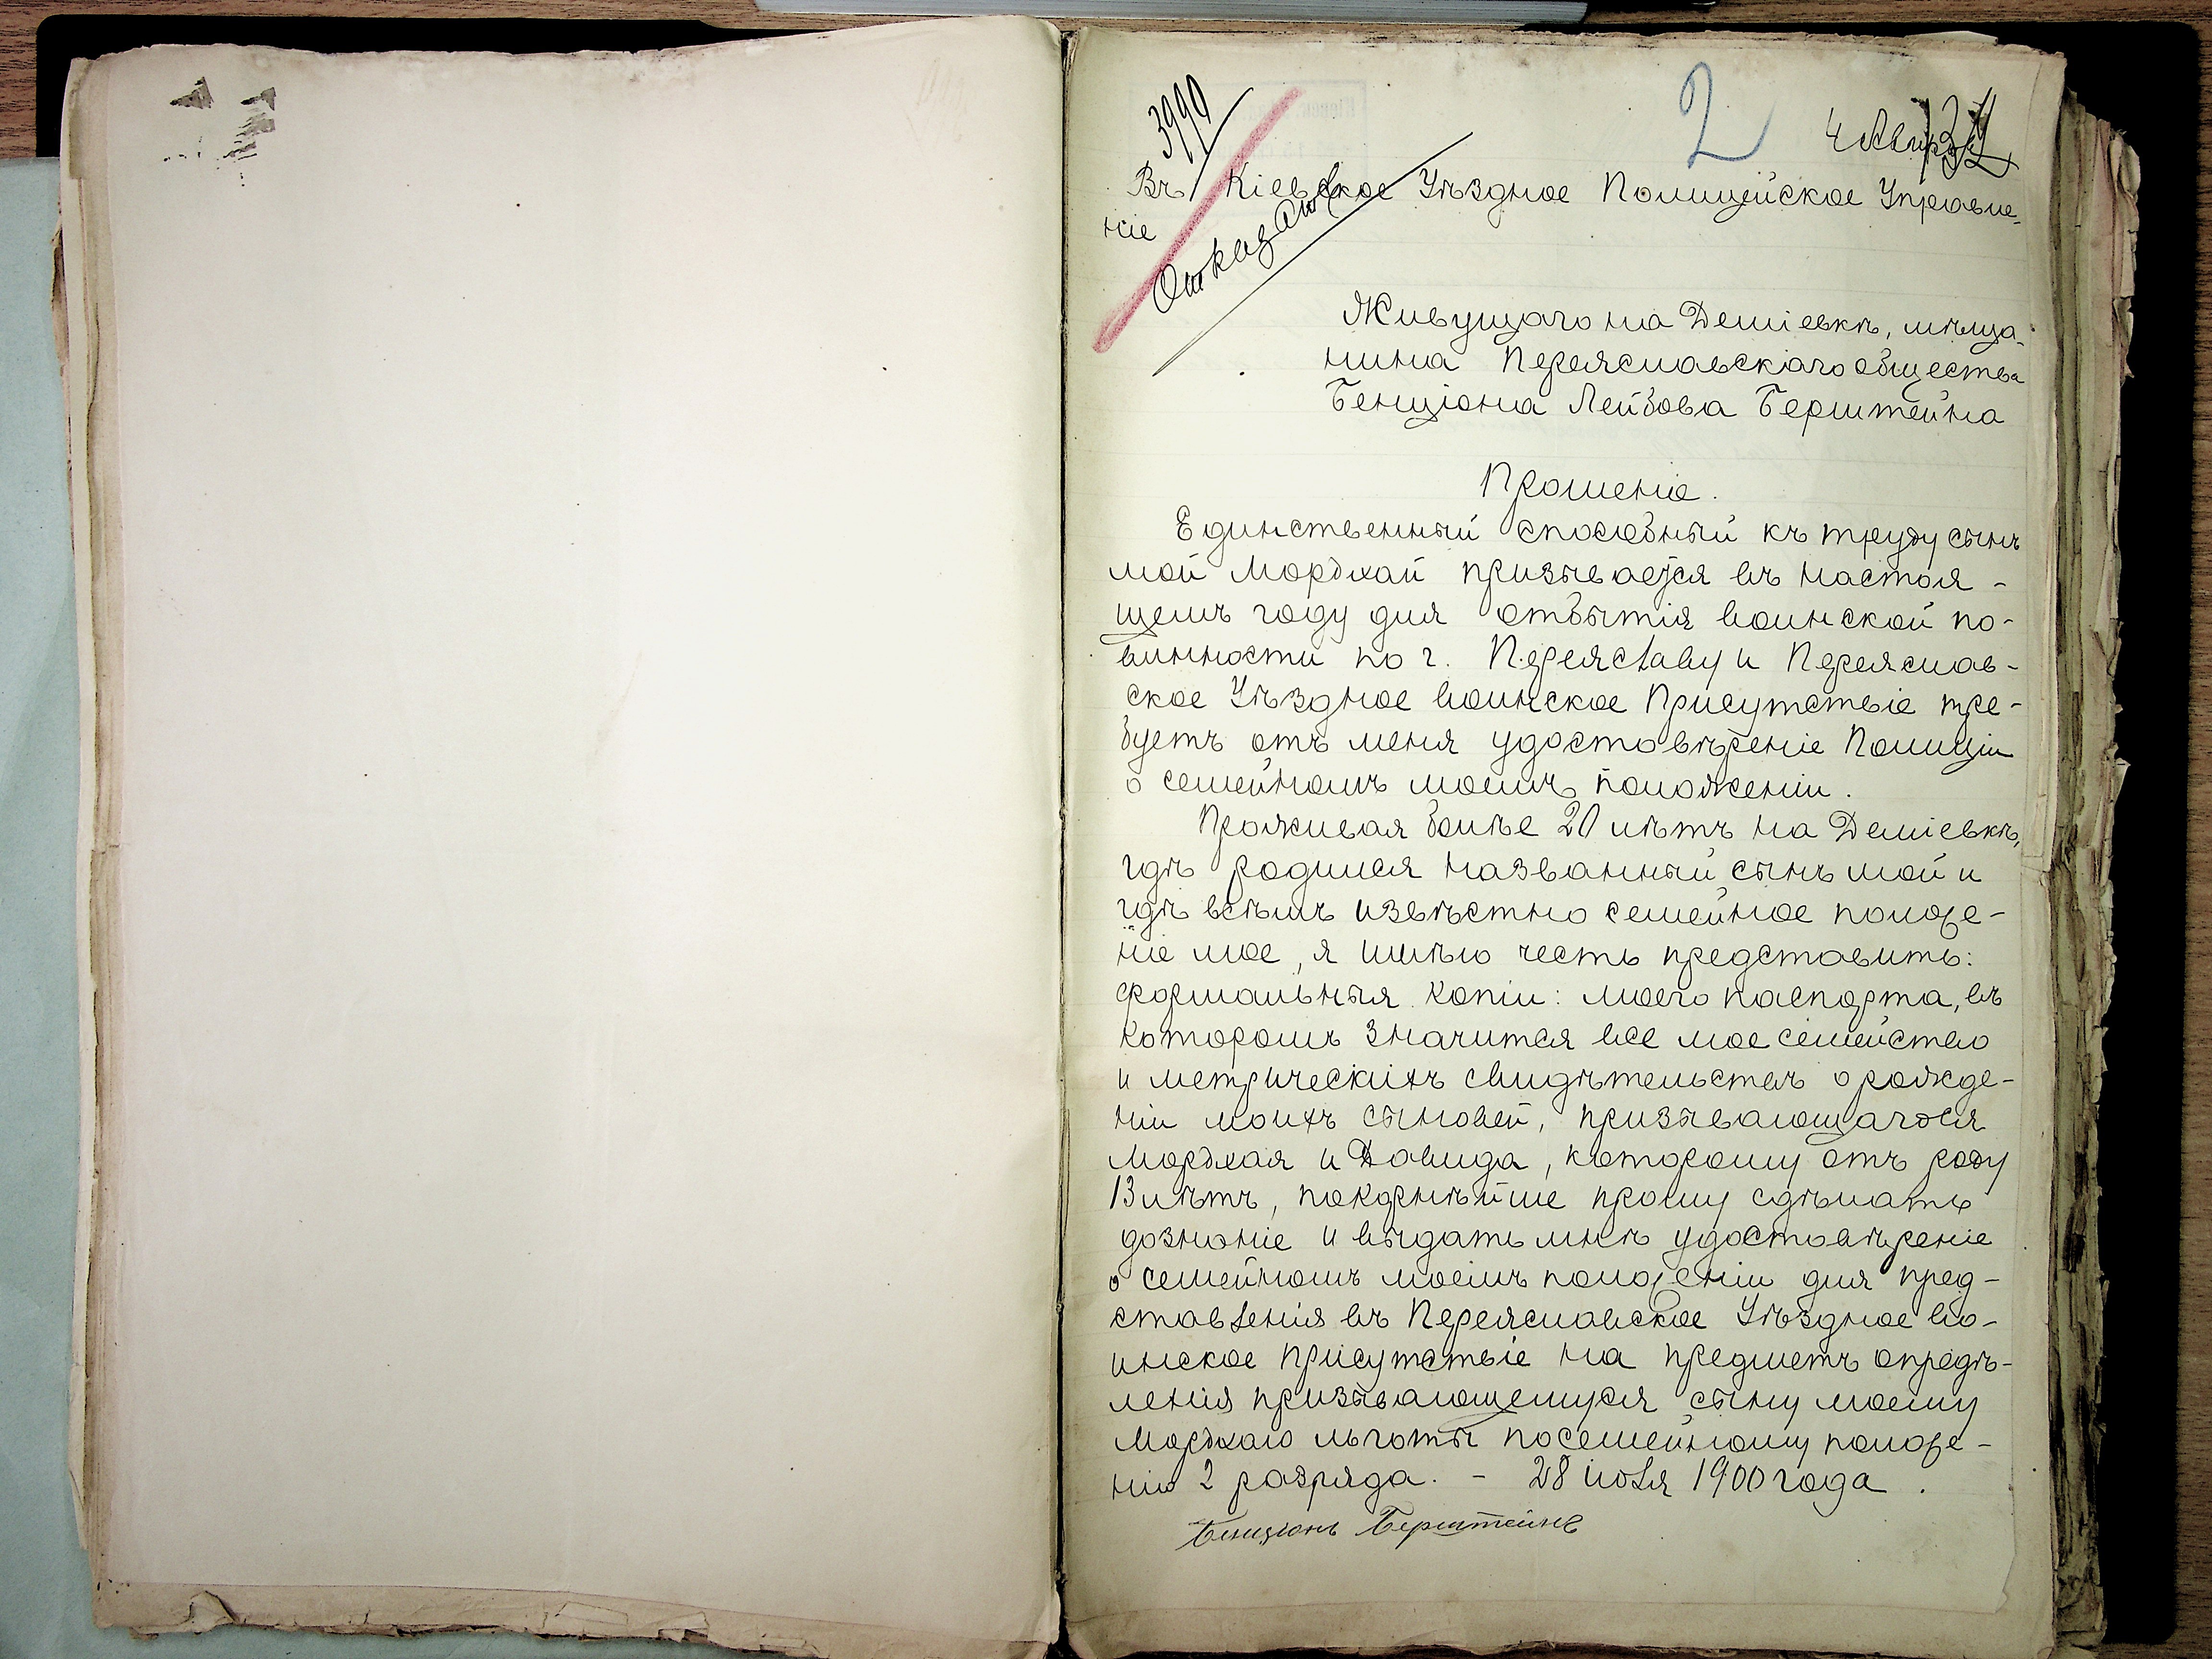 3990
2
4
Въ Кіевское Уѣздное Полицейское Управле-
ніе
Отказать
Живущаго на Деміевкѣ, мѣща-
нина Переяславскаго общества
Бенціона Лейзова Берштейна
Прошеніе.
Единственный способный къ труду сынъ
мой Мордхай призывается въ настоя-
щемъ году для отбытія воинской по-
винности по г. Переяславу и Переяслав-
ское Уѣздное воинское Присутствіе тре-
буетъ отъ меня удостовѣреніе Полиціи
о семейномъ моемъ положеніи.
Проживая болѣе 20 лѣтъ на Деміевкѣ,
гдѣ родился названный сынъ мой и
гдѣ всѣмъ извѣстно семейное положе-
ніе мое, я имѣю честь представить:
формальныя копіи: моего паспорта, въ
которомъ значится все мое семейство
и метрическихъ свидѣтельствъ о рожде-
ніи моихъ сыновей, призывающагося
Мордхая и Давида, которому отъ роду
13 лѣтъ, покорнѣйше прошу сдѣлать
дознаніе и выдать мнѣ удостовѣреніе
о семейномъ моемъ положеніи для пред-
ставленія въ Переяславское Уѣздное во-
инское присутствіе на предметъ опредѣ-
ленія призывающемуся сыну моему
Мордхаю льготы по семейному положе-
нію 2 разряда. - 28 іюля 1900 года.
Бенціонъ Берштейнъ